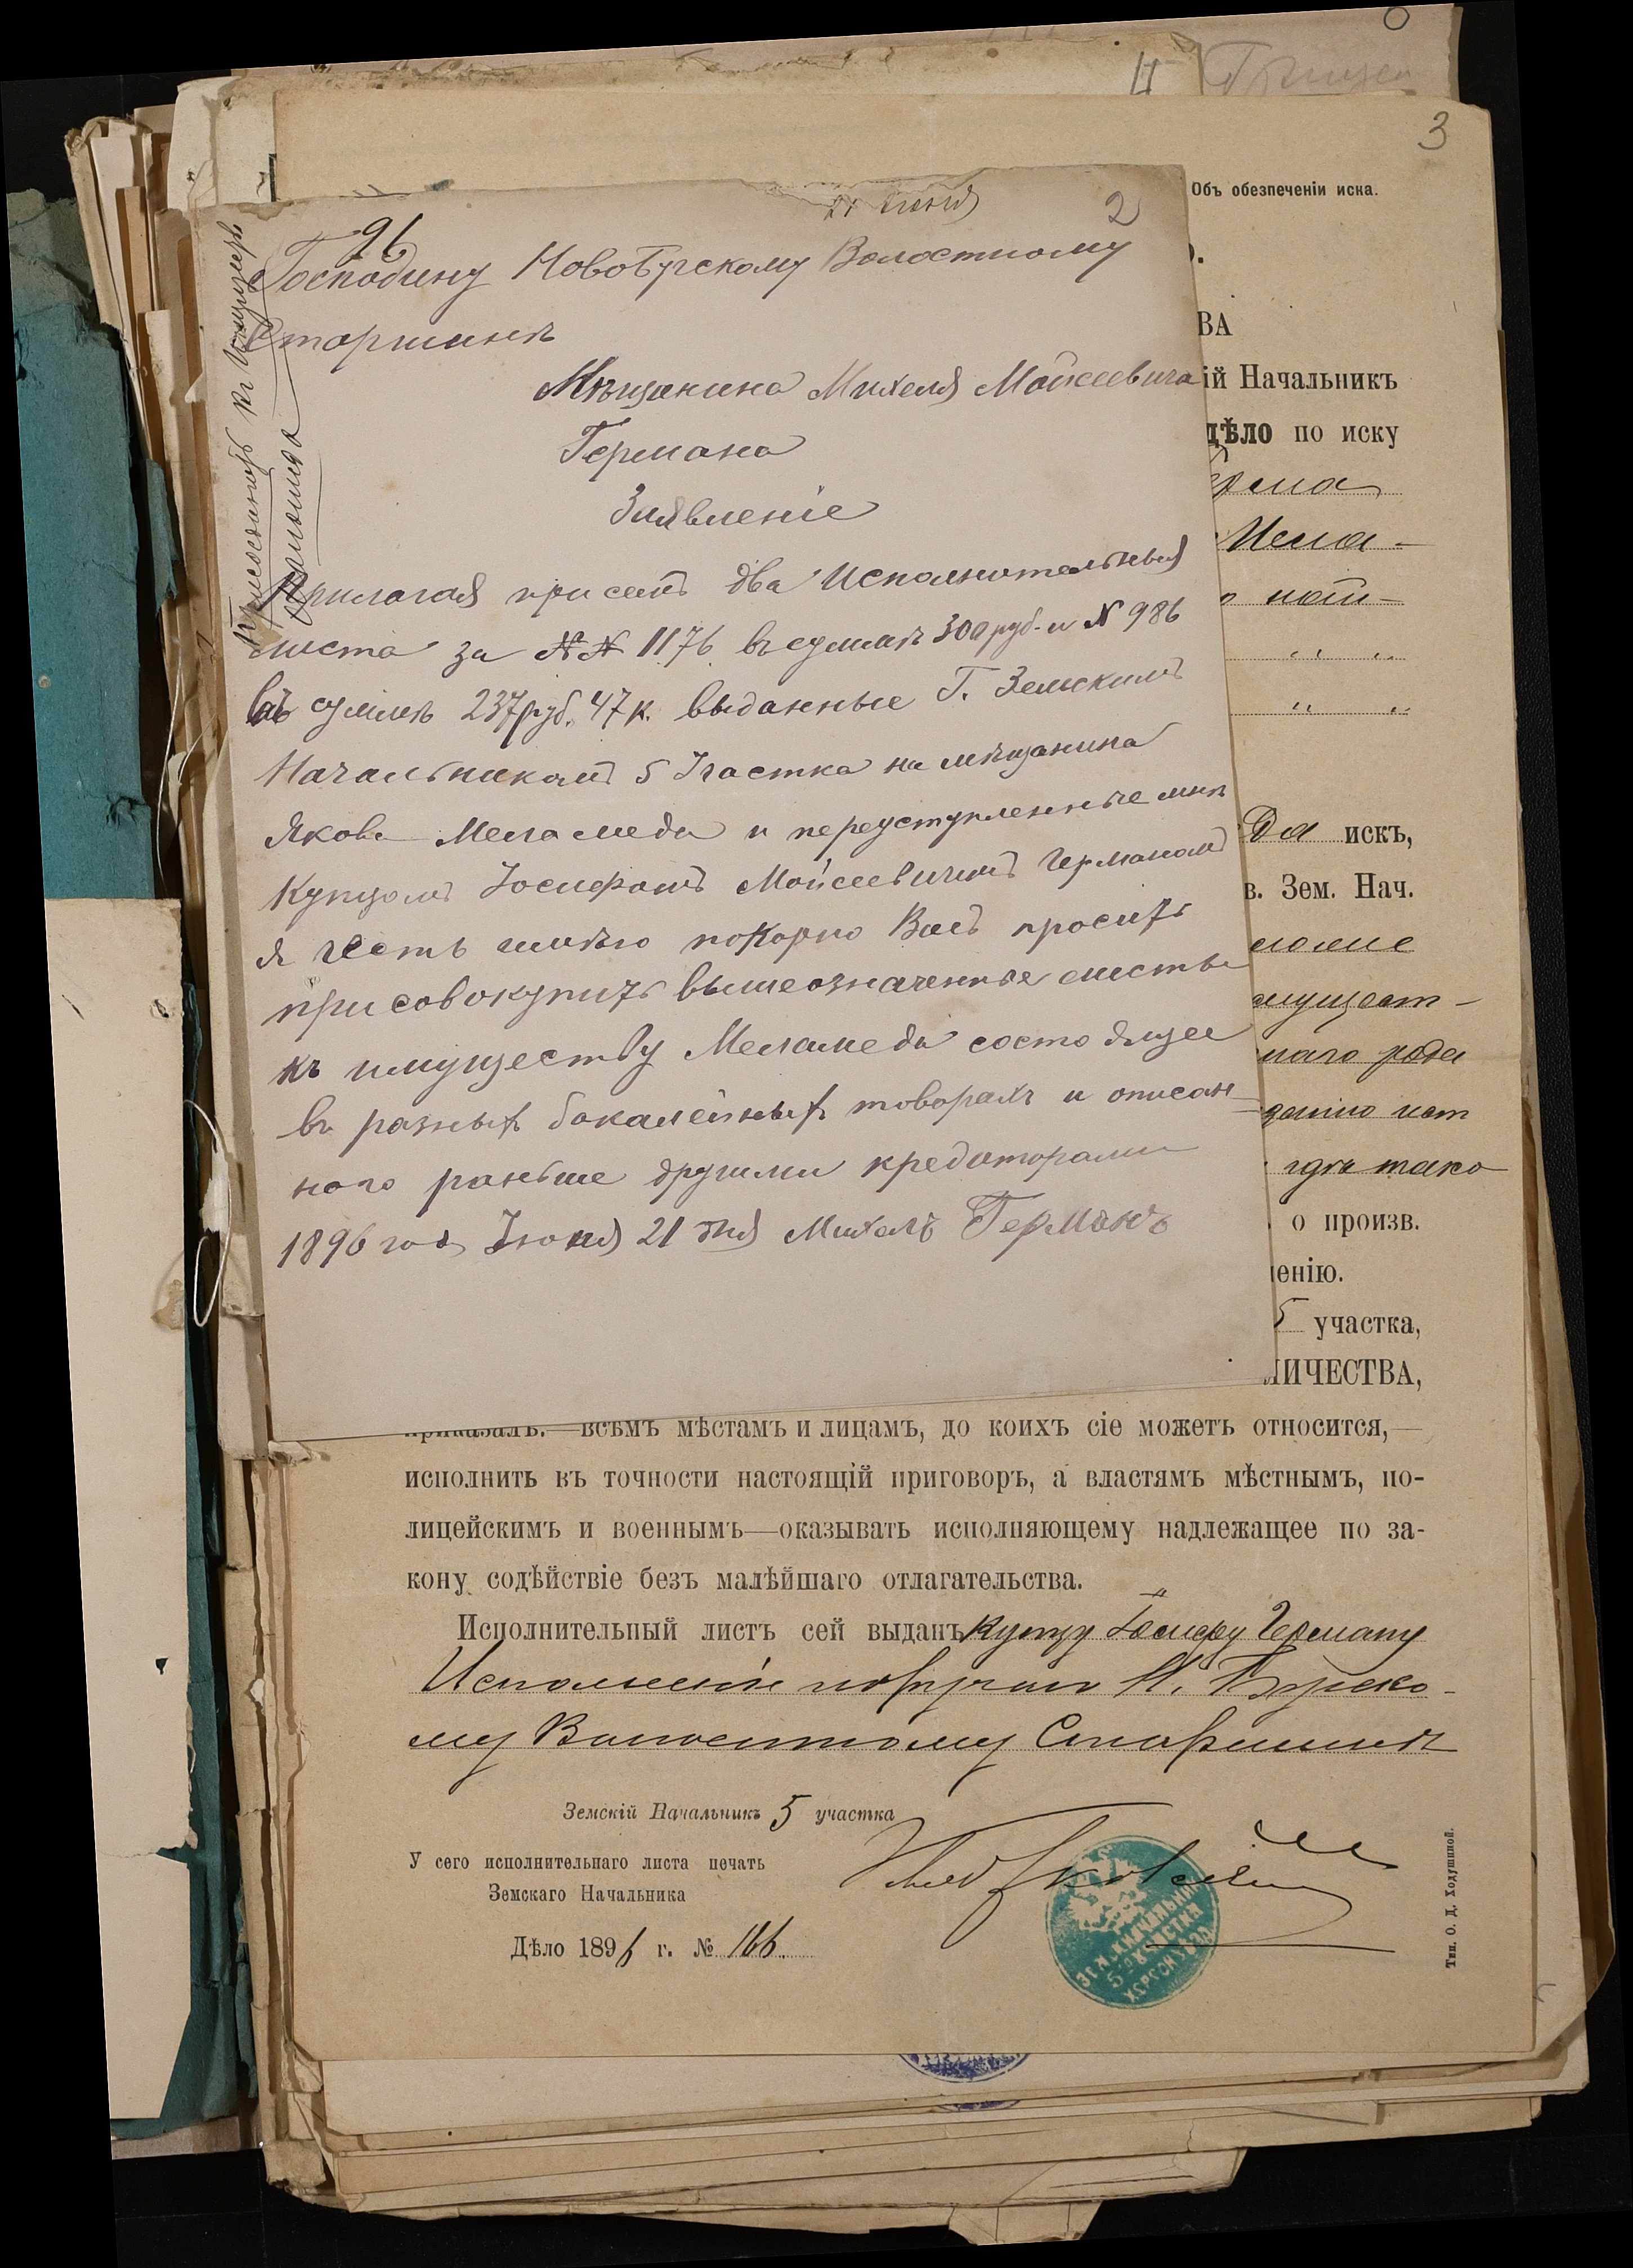 3
Объ обезпеченіи иска.
21 Іюня
2
96
Господину Новобугскому Волостному
Старшинѣ
Мѣщанина Михеля Мойсеевича
Германа
Заявленіе
Прилагая при семъ два Исполнительныя
листа за №№ 1176 въ суммѣ 300 руб. и № 986
въ суммѣ 237 руб. 47 к. выданные Г. Земскимъ
Начальникомъ 5 Участка на мѣщанина
Якова Меламеда и переуступленные мнѣ
Купцомъ Іосифомъ Мойсеевичемъ Германомъ
я честь имѣю покорно Васъ просить
присовокупить вышеозначенные листы
къ имуществу Меламеда состоящее
въ разныхъ бакалейныхъ товарахъ и описан-
ного раньше другими кредиторами
1896 года Іюня 21 дня Михель Германъ
ВА
ій Начальникъ
дѣло по иску
Мела-
да искъ,
в. Зем. Нач.
муществ-
наго рода
гдѣ тако
о произв.
енію.
5 участка,
ЛИЧЕСТВА,
приказалъ:—всѣмъ мѣстамъ и лицамъ, до коихъ сіе можетъ относится,—
исполнить въ точности настоящій приговоръ, а властямъ мѣстнымъ, по-
лицейскимъ и военнымъ—оказывать исполняющему надлежащее по за-
кону содѣйствіе безъ малѣйшаго отлагательства.
Исполнительный листъ сей выданъ купцу Іосифу Герману
Исполненіе поручено Н. Бугско-
му Волостному Старшинѣ
Земскій Начальникъ 5 участка
У сего исполнительнаго листа печать
Земскаго Начальника
Дѣло 1896 г. № 166
Тип. О. Д. Ходушиной.